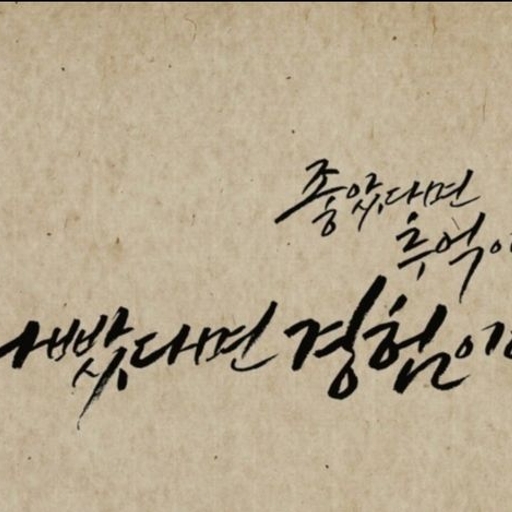 좋았다면
추억이
나빴다면 경험이